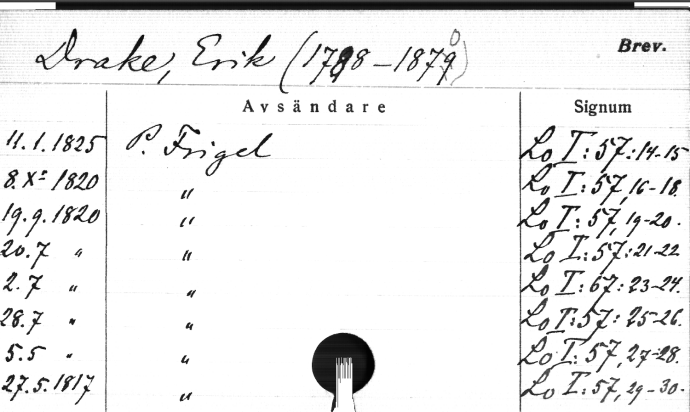 Drake, Erik (1788-1870)
Brev.
Avsändare Signum
11.1.1825 P. Frigel Lo I:57:14-15
8.Xᵉ 1820 " Lo I:57,16-18.
19.9.1820 " Lo I:57,19-20.
20.7 " " Lo I:57:21-22
2.7 " " Lo I:67:23-24.
28.7 " " Lo I:57:25-26.
5.5 " " Lo I:57,27-28.
27.5.1817 " Lo I:57,29-30.